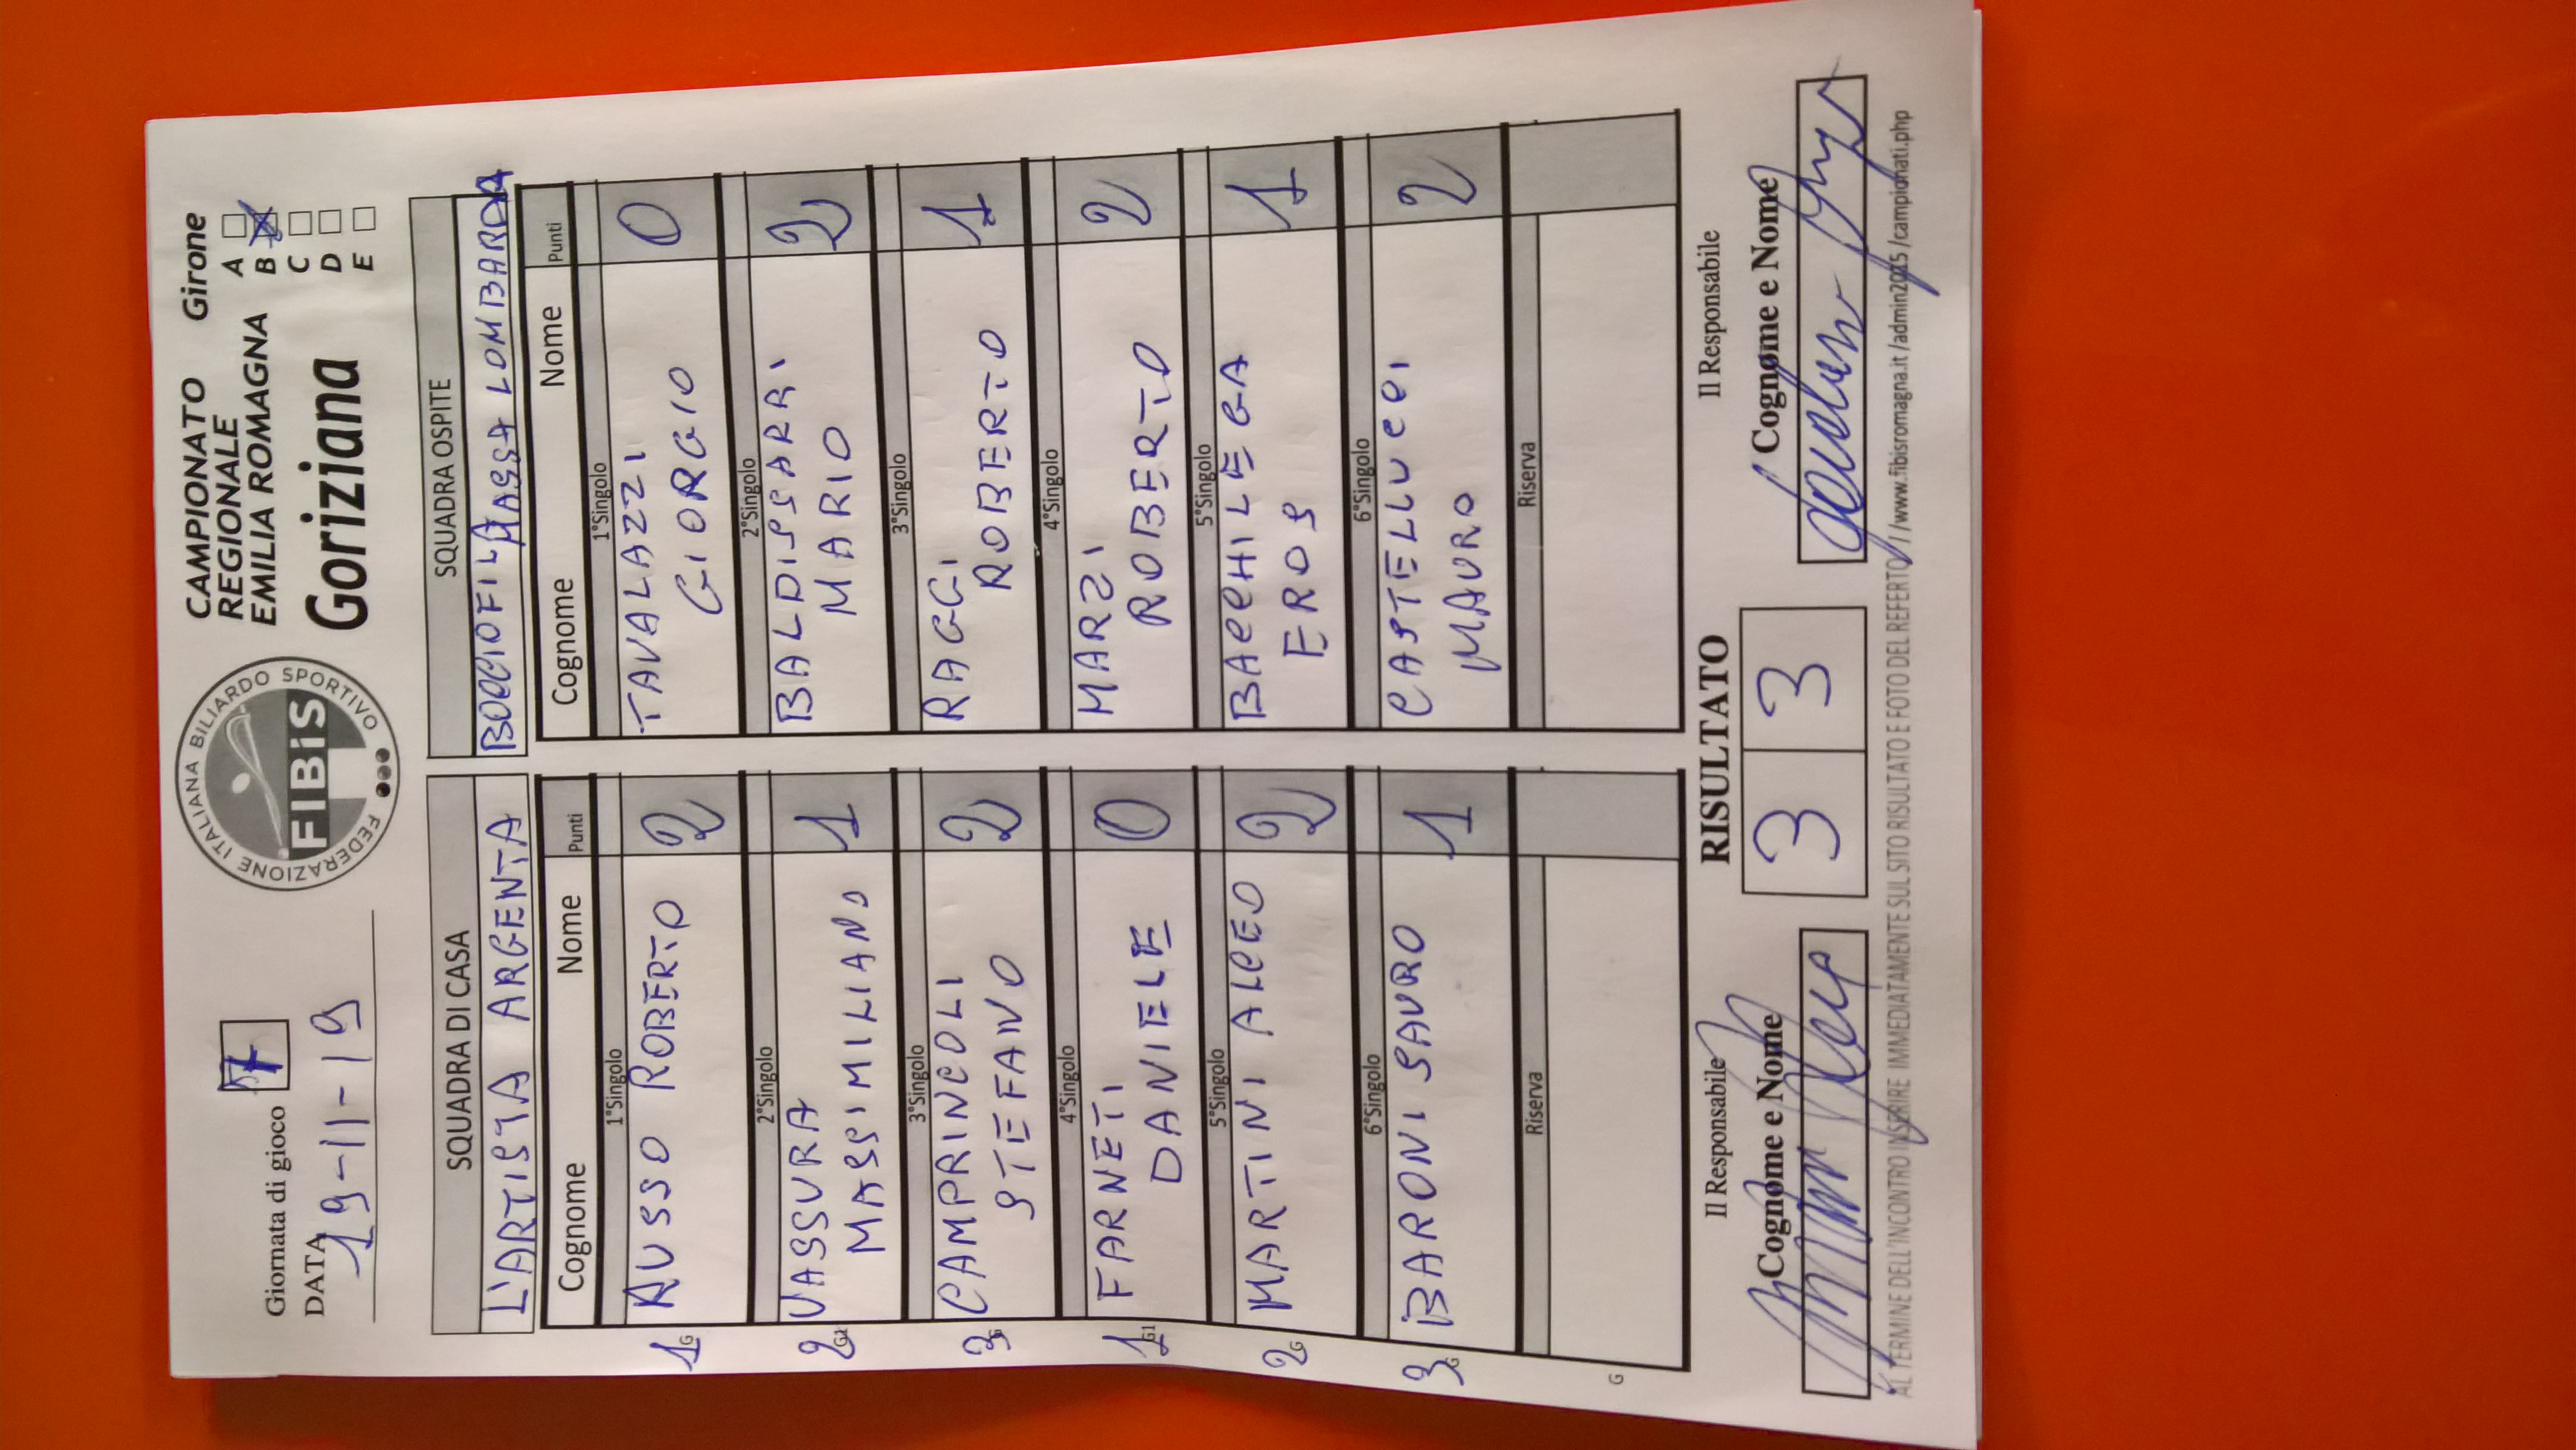 Giornata di gioco 7
DATA 19-11-19
FEDERAZIONE ITALIANA BILIARDO SPORTIVO
FIBiS
CAMPIONATO
REGIONALE
EMILIA ROMAGNA
Goriziana
Girone
A
B X
C
D
E
SQUADRA DI CASA
L'ARTISTA ARGENTA
Cognome Nome Punti
1°Singolo
1 G RUSSO ROBERTO 2
2°Singolo
2 VASSURA
MASSIMILIANO 1
3°Singolo
3 CAMPRINCOLI
STEFANO 2
4°Singolo
1 G1 FARNETI
DANIELE 0
5°Singolo
2 G MARTINI ALCEO 2
6°Singolo
3 G BARONI SAURO 1
Riserva
G
SQUADRA OSPITE
BOCCIOFILA MASSA LOMBARDA
Cognome Nome Punti
1°Singolo
TAVALAZZI
GIORGIO 0
2°Singolo
BALDISSARRI
MARIO 2
3°Singolo
RAGGI
ROBERTO 1
4°Singolo
MARZI
ROBERTO 2
5°Singolo
BACCHILEGA
EROS 1
6°Singolo
CASTELLUCCI
MAURO 2
Riserva
Il Responsabile
Cognome e Nome
RISULTATO
3 3
Il Responsabile
Cognome e Nome
AL TERMINE DELL'INCONTRO INSERIRE IMMEDIATAMENTE SUL SITO RISULTATO E FOTO DEL REFERTO //www.fibisromagna.it/admin2015/campionati.php